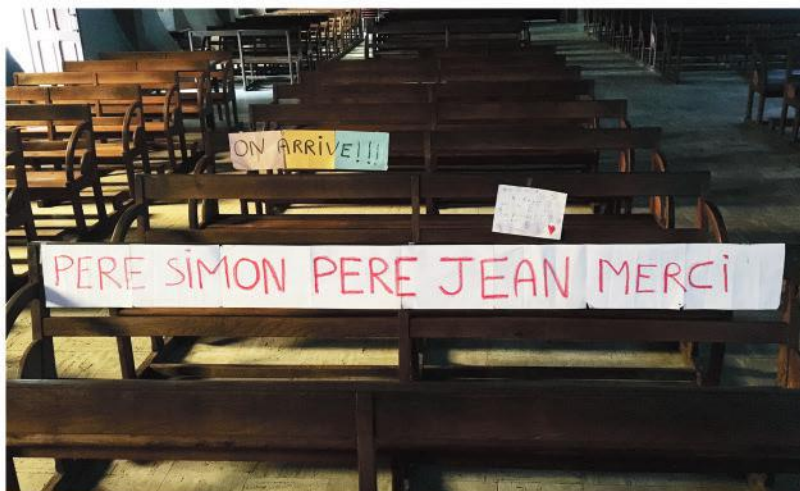 ON ARRIVE!!!
PERE SIMON PERE JEAN MERCI